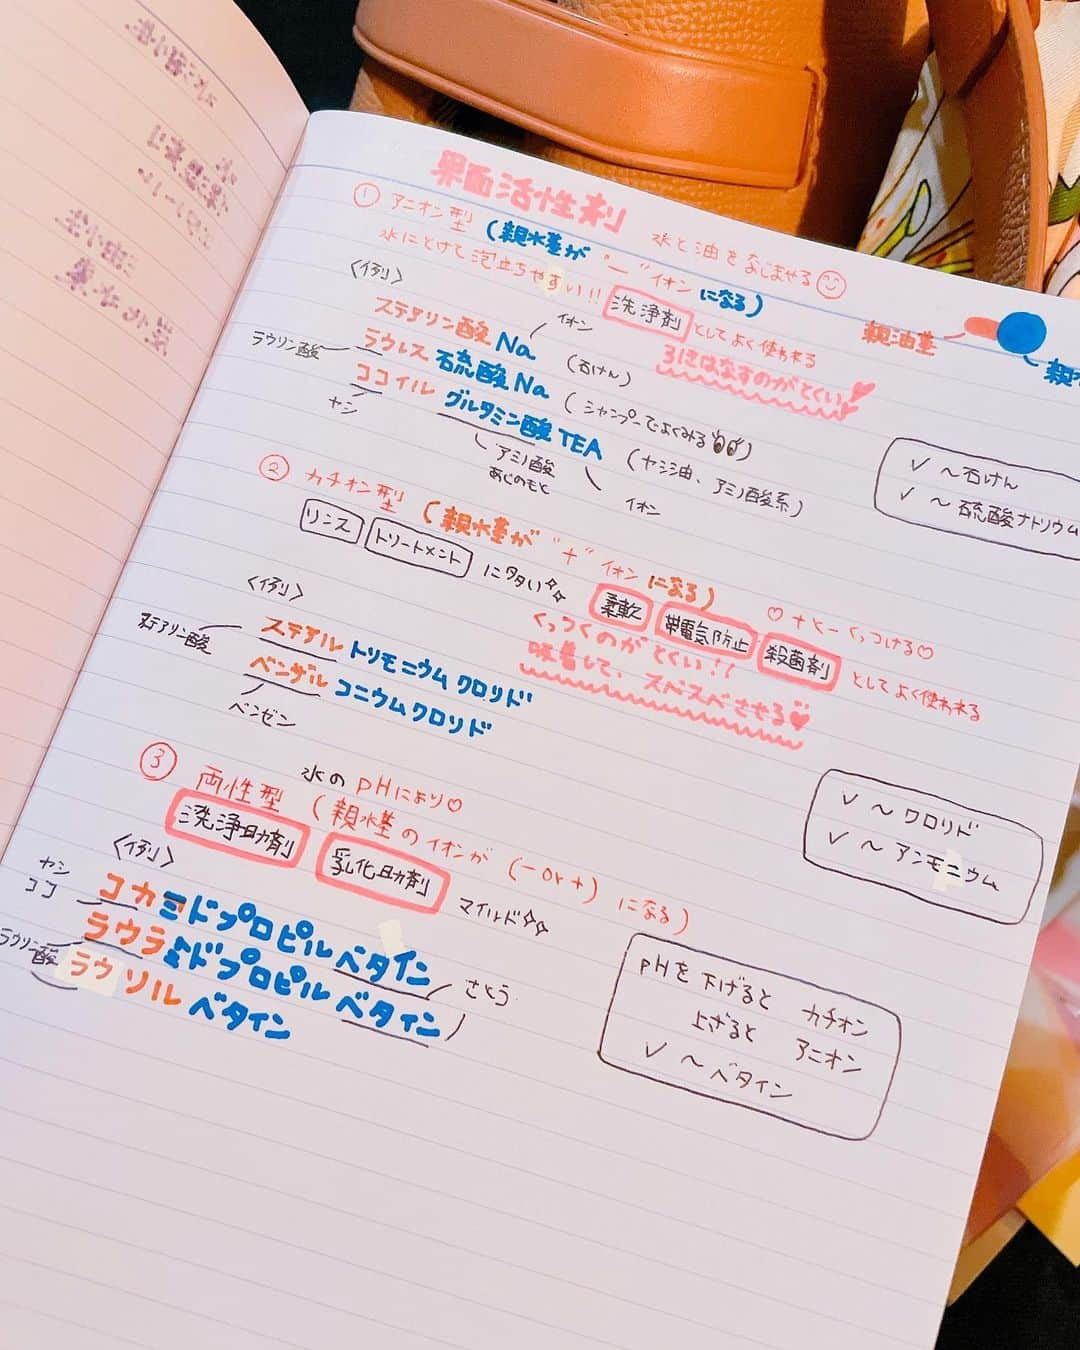 界面活性剤
水と油をなじませる
① アニオン型 (親水基が "ー" イオンになる)
水にとけて泡立ちやすい!! 洗浄剤 としてよく使われる
引きはなすのがとくい
親油基
親
〈例〉
ステアリン酸 Na (石けん)
イオン
ラウリン酸
ラウレス硫酸 Na (シャンプーでよくみる)
ココイルグルタミン酸 TEA (ヤシ油、アミノ酸系)
ヤシ
アミノ酸
あじのもと
イオン
✓ 〜石けん
✓ 〜硫酸ナトリウム
② カチオン型 (親水基が "+" イオンになる)
リンス トリートメント に多い
♡ +とーくっつける♡
柔軟 帯電気防止 殺菌剤 としてよく使われる
くっつくのがとくい!!
吸着して、スベスベさせる
〈例〉
ステアリン酸
ステアルトリモニウムクロリド
ベンザルコニウムクロリド
ベンゼン
✓ 〜クロリド
✓ 〜アンモニウム
水のpHにより♡
③ 両性型 (親水基のイオンが (- or +) になる)
洗浄助剤 乳化助剤 マイルド
〈例〉
ヤシ
ココ
コカミドプロピルベタイン
ラウラミドプロピルベタイン
さとう
ラウリン酸
ラウリルベタイン
pHを下げると カチオン
上げると アニオン
✓ 〜ベタイン